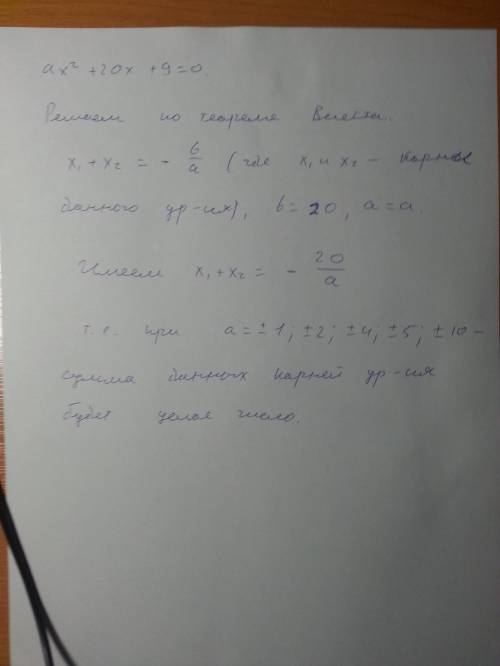 ax² + 20x + 9 = 0.
Решаем по теореме Виетта.
x₁ + x₂ = - b/a (где x₁ и x₂ - корни
данного ур-ия), b = 20, a = a.
Имеем x₁ + x₂ = - 20/a
т.е. при a = ± 1; ± 2; ± 4; ± 5; ± 10 -
сумма данных корней ур-ия
будет целое число.